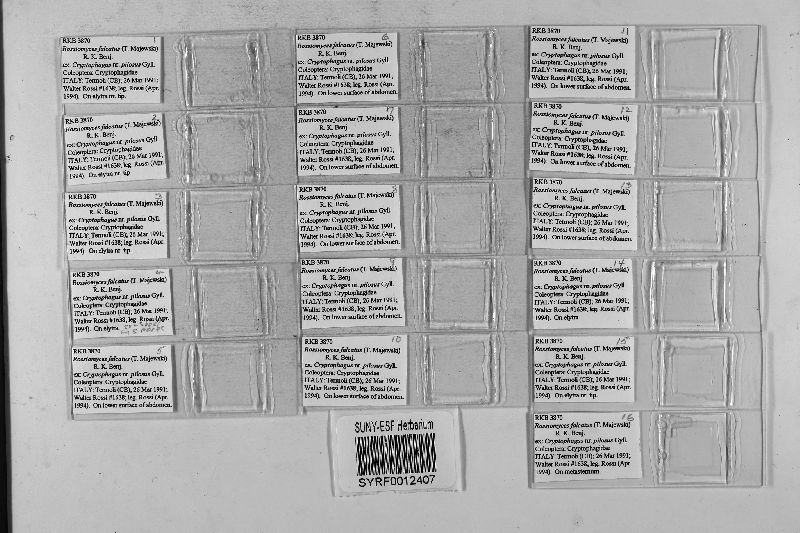 RKB 3870 1
Rossiomyces falcatus (T. Majewski)
R. K. Benj.
ex: Cryptophagus nr. pilosus Gyll.
Coleoptera: Cryptophagidae
ITALY: Termoli (CB), 26 Mar 1991;
Walter Rossi #1638; leg. Rossi (Apr.
1994). On elytra nr. tip.
RKB 3870
Rossiomyces falcatus (T. Majewski)
R. K. Benj.
ex: Cryptophagus nr. pilosus Gyll.
Coleoptera: Cryptophagidae
ITALY: Termoli (CB), 26 Mar 1991;
Walter Rossi #1638; leg. Rossi (Apr.
1994). On elytra nr. tip
RKB 3870 3
Rossiomyces falcatus (T. Majewski)
R. K. Benj.
ex: Cryptophagus nr. pilosus Gyll.
Coleoptera: Cryptophagidae
ITALY: Termoli (CB), 26 Mar 1991;
Walter Rossi #1638; leg. Rossi (Apr.
1994). On elytra nr. tip
RKB 3870
Rossiomyces falcatus (T. Majewski)
R. K. Benj.
ex: Cryptophagus nr. pilosus Gyll.
Coleoptera: Cryptophagidae
ITALY: Termoli (CB), 26 Mar 1991;
Walter Rossi #1638, leg. Rossi (Apr.
1994). On elytra
RKB 3870 5
Rossiomyces falcatus (T. Majewski)
R. K. Benj.
ex: Cryptophagus nr. pilosus Gyll.
Coleoptera: Cryptophagidae
ITALY: Termoli (CB), 26 Mar 1991;
Walter Rossi #1638; leg. Rossi (Apr.
1994). On lower surface of abdomen.
RKB 3870 6
Rossiomyces falcatus (T. Majewski)
R. K. Benj.
ex: Cryptophagus nr. pilosus Gyll.
Coleoptera: Cryptophagidae
ITALY: Termoli (CB), 26 Mar 1991;
Walter Rossi #1638; leg. Rossi (Apr.
1994). On lower surface of abdomen.
RKB 3870
Rossiomyces falcatus (T. Majewski)
R. K. Benj.
ex: Cryptophagus nr. pilosus Gyll.
Coleoptera: Cryptophagidae
ITALY: Termoli (CB), 26 Mar 1991;
Walter Rossi #1638; leg. Rossi (Apr.
1994). On lower surface of abdomen.
RKB 3870 8
Rossiomyces falcatus (T. Majewski)
R. K. Benj.
ex: Cryptophagus nr. pilosus Gyll.
Coleoptera: Cryptophagidae
ITALY: Termoli (CB), 26 Mar 1991;
Walter Rossi #1638; leg. Rossi (Apr.
1994). On lower surface of abdomen.
RKB 3870 9
Rossiomyces falcatus (T. Majewski)
R. K. Benj.
ex: Cryptophagus nr. pilosus Gyll.
Coleoptera: Cryptophagidae
ITALY: Termoli (CB), 26 Mar 1991;
Walter Rossi #1638; leg. Rossi (Apr.
1994). On lower surface of abdomen.
RKB 3870 10
Rossiomyces falcatus (T. Majewski)
R. K. Benj.
ex: Cryptophagus nr. pilosus Gyll.
Coleoptera: Cryptophagidae
ITALY: Termoli (CB), 26 Mar 1991;
Walter Rossi #1638; leg. Rossi (Apr.
1994). On lower surface of abdomen.
RKB 3870 11
Rossiomyces falcatus (T. Majewski)
R. K. Benj.
ex: Cryptophagus nr. pilosus Gyll.
Coleoptera: Cryptophagidae
ITALY: Termoli (CB), 26 Mar 1991;
Walter Rossi #1638; leg. Rossi (Apr.
1994). On lower surface of abdomen.
RKB 3870 12
Rossiomyces falcatus (T. Majewski)
R. K. Benj.
ex: Cryptophagus nr. pilosus Gyll.
Coleoptera: Cryptophagidae
ITALY: Termoli (CB), 26 Mar 1991;
Walter Rossi #1638; leg. Rossi (Apr.
1994). On lower surface of abdomen.
RKB 3870 13
Rossiomyces falcatus (T. Majewski)
R. K. Benj.
ex: Cryptophagus nr. pilosus Gyll.
Coleoptera: Cryptophagidae
ITALY: Termoli (CB), 26 Mar 1991;
Walter Rossi #1638; leg. Rossi (Apr.
1994). On lower surface of abdomen.
RKB 3870 14
Rossiomyces falcatus (T. Majewski)
R. K. Benj.
ex: Cryptophagus nr. pilosus Gyll.
Coleoptera: Cryptophagidae
ITALY: Termoli (CB), 26 Mar 1991;
Walter Rossi #1638; leg. Rossi (Apr.
1994). On elytra
RKB 3870 15
Rossiomyces falcatus (T. Majewski)
R. K. Benj.
ex: Cryptophagus nr. pilosus Gyll.
Coleoptera: Cryptophagidae
ITALY: Termoli (CB), 26 Mar 1991;
Walter Rossi #1638; leg. Rossi (Apr.
1994). On elytra nr. tip.
RKB 3870 16
Rossiomyces falcatus (T. Majewski)
R. K. Benj.
ex: Cryptophagus nr. pilosus Gyll.
Coleoptera: Cryptophagidae
ITALY: Termoli (CB), 26 Mar 1991;
Walter Rossi #1638, leg. Rossi (Apr.
1994). On metasternum
SUNY-ESF Herbarium
SYRF0012407